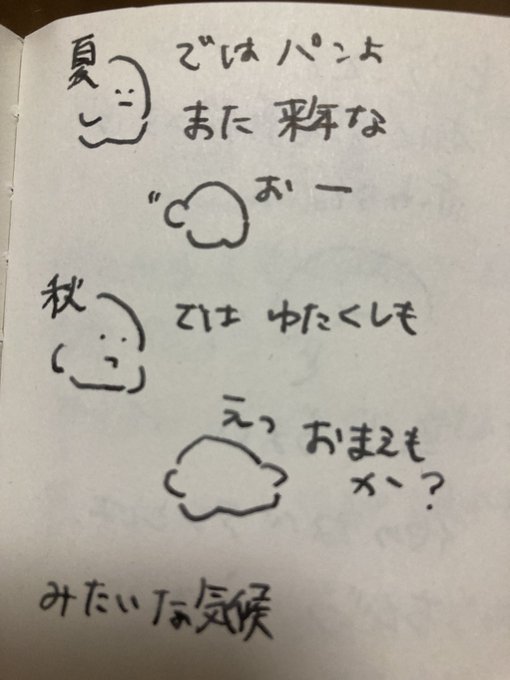 夏
ではパンよ
また来年な
おー
秋
では ゆたくしも
えっ
おまえも
か?
みたいな気候